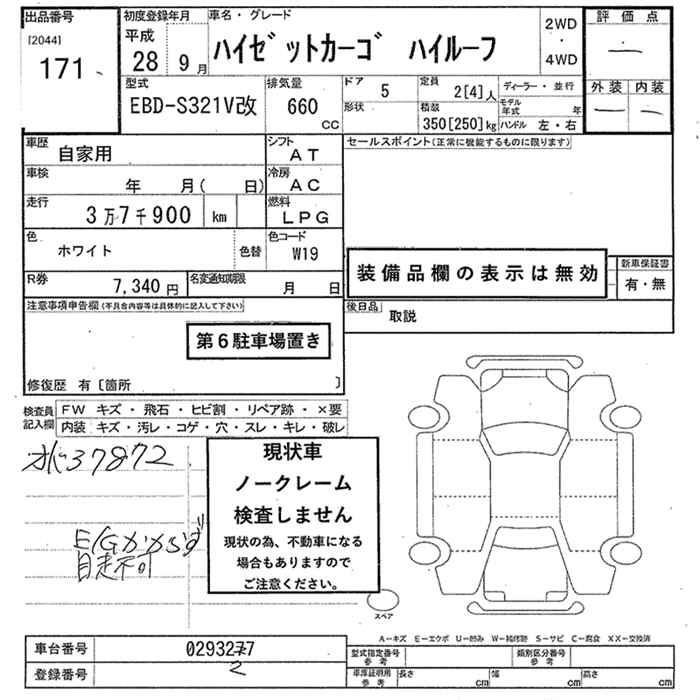 出品番号
[2044]
171
初度登録年月
平成
28 9月
車名・グレード
ハイゼットカーゴ ハイルーフ
2WD
・
4WD
評価点
―
外装 内装
― ―
型式
EBD-S321V改
排気量
660
CC
ドア
5
形状
定員
2[4]人
積載
350[250]kg
ディーラー・並行
モデル年式 年
ハンドル 左・右
車歴
自家用
シフト
AT
車検
年 月( 日)
冷房
AC
走行
3万7千900 km
燃料
LPG
色
ホワイト
色替
色コード
W19
R券
7,340円
名変通知期限
月 日
セールスポイント(正常に機能するものに限ります)
装備品欄の表示は無効
新車保証書
有・無
後日品
取説
注意事項申告欄(不具合内容等は具体的に記入して下さい)
第6駐車場置き
修復歴 有〔箇所 〕
検査員記入欄
FW キズ・飛石・ヒビ割・リペア跡・×要
内装 キズ・汚レ・コゲ・穴・スレ・キレ・破レ
37872
E/Gかからず
自走不可
現状車
ノークレーム
検査しません
現状の為、不動車になる
場合もありますので
ご注意ください。
スペア
A―キズ E―エクボ U―凹み W―補修跡 S―サビ C―腐食 XX―交換済
車台番号
0293277
2
登録番号
型式指定番号
参考
類別区分番号
参考
車庫証明用
参考
長さ cm
幅 cm
高さ cm